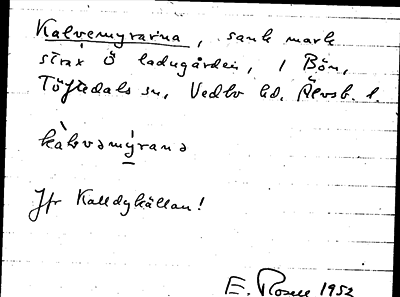 Kalvemyrarna, sank mark
strax Ö ladugården, i Bön,
Töftedals sn, Vedbo hd. Älvsb. l.
kàlvəmýrana
Jfr Kalldykällan!
E. Rosell 1952